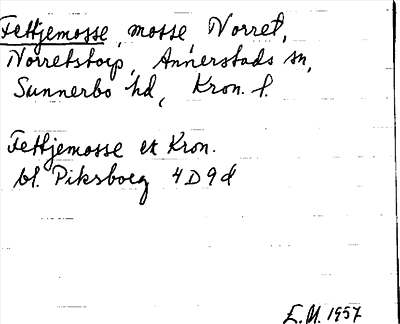 Fettjemosse, mosse, Norret,
Norretstorp, Annerstads sn,
Sunnerbo hd, Kron. l.
Fettjemosse ek Kron.
bl. Piksborg 4D9d
E.M. 1957